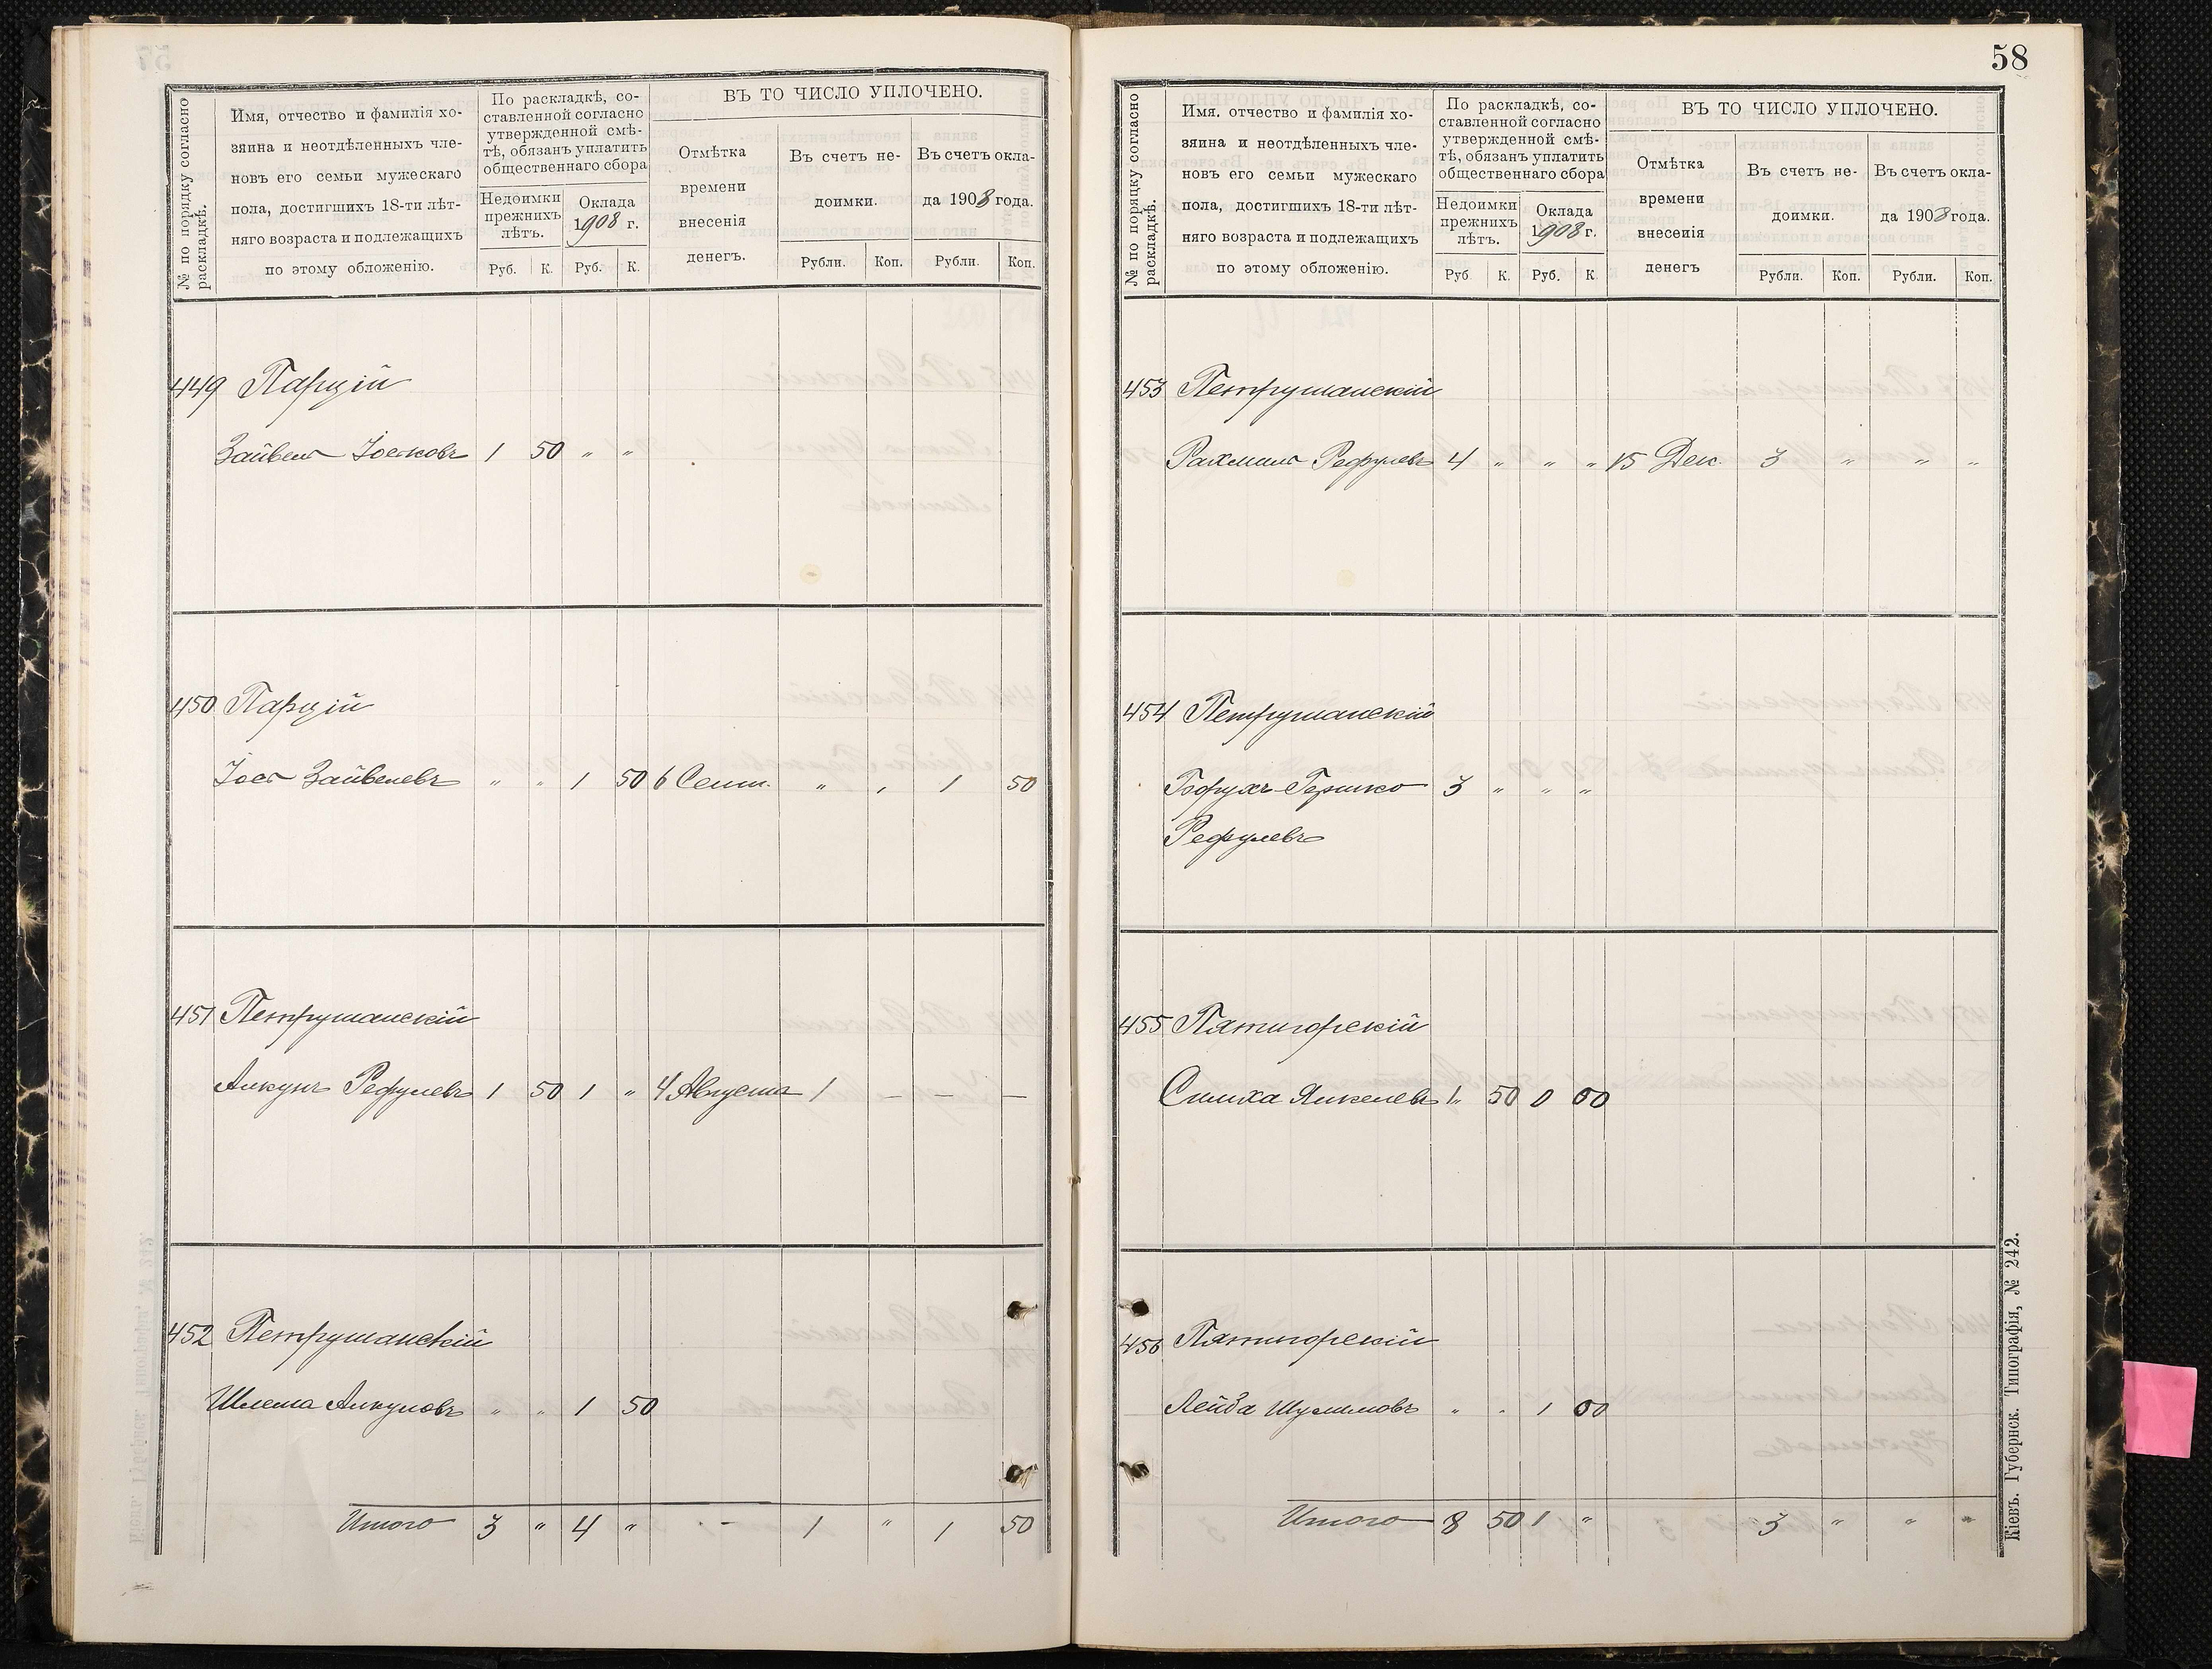 № по порядку согласно
раскладкѣ.
Имя, отчество и фамилія хо-
зяина и неотдѣленныхъ чле-
новъ его семьи мужескаго
пола, достигшихъ 18-ти лѣт-
няго возраста и подлежащихъ
по этому обложенію.
По раскладкѣ, со-
ставленной согласно
утвержденной смѣ-
тѣ, обязанъ уплатить
общественнаго сбора
Недоимки
прежнихъ
лѣтъ.
Оклада
1908 г.
Руб. К. Руб. К.
ВЪ ТО ЧИСЛО УПЛОЧЕНО.
Отмѣтка
времени
внесенія
денегъ.
Въ счетъ не-
доимки.
Въ счетъ окла-
да 1908 года.
Рубли. Коп. Рубли. Коп.
449 Парцій
Зайвель Іосковъ 1 50 " "
450 Парцій
Іось Зайвелевъ " " 1 50 6 Сент. " " 1 50
451 Петрушанскій
Алкунъ Рефулевъ 1 50 1 " 4 Августа 1 — — —
452 Петрушанскій
Шлема Алкуновъ " " 1 50
Итого 3 " 4 " - 1 " 1 50
58
№ по порядку согласно
раскладкѣ.
Имя, отчество и фамилія хо-
зяина и неотдѣленныхъ чле-
новъ его семьи мужескаго
пола, достигшихъ 18-ти лѣт-
няго возраста и подлежащихъ
по этому обложенію.
По раскладкѣ, со-
ставленной согласно
утвержденной смѣ-
тѣ, обязанъ уплатить
общественнаго сбора
Недоимки
прежнихъ
лѣтъ.
Оклада
1908 г.
Руб К. Руб. К.
ВЪ ТО ЧИСЛО УПЛОЧЕНО.
Отмѣтка
времени
внесенія
денегъ
Въ счетъ не-
доимки.
Въ счетъ окла-
да 1908 года.
Рубли. Коп. Рубли. Коп.
453 Петрушанскій
Рахмиль Рефулевъ 4 " " " 15 Дек. 3 " " "
454 Петрушанскій
Борухъ-Гершко 3 " " "
Рефулевъ
455 Пятигорскій
Симха Янкелевъ 1 " 50 0 00
456 Пятигорскій
Лейба Шулимовъ " " 1 00
Итого 8 50 1 " 3 " " "
Кіевъ. Губернск. Типографія, № 242.